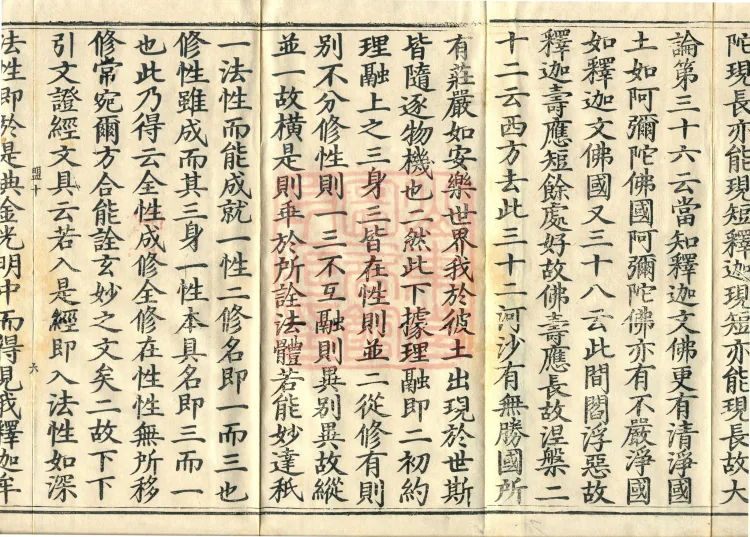 陀現長亦能現短釋迦現短亦能現長故大
論第三十六云當知釋迦文佛更有清淨國
土如阿彌陀佛國阿彌陀佛亦有不嚴淨國
如釋迦文佛國又三十八云此間閻浮惡故
釋迦壽應短餘處好故佛壽應長故涅槃二
十二云西方去此三十二河沙有無勝國所
有莊嚴如安樂世界我於彼土出現於世斯
皆隨逐物機也二然此下據理融即二初約
理融上之三身三皆在性則並二從修有則
別不分修性則一三不互融則異別異故縱
並一故橫是則乖於所詮法體若能妙達秖
一法性而能成就一性二修名即一而三也
修性雖成而其三身一性本具名即三而一
也此乃得云全性成修全修在性性無所移
修常宛爾方合能詮玄妙之文矣二故下下
引文證經文具云若入是經即入法性如深
盟十
六
法性即於是典金光明中而得見我釋迦牟